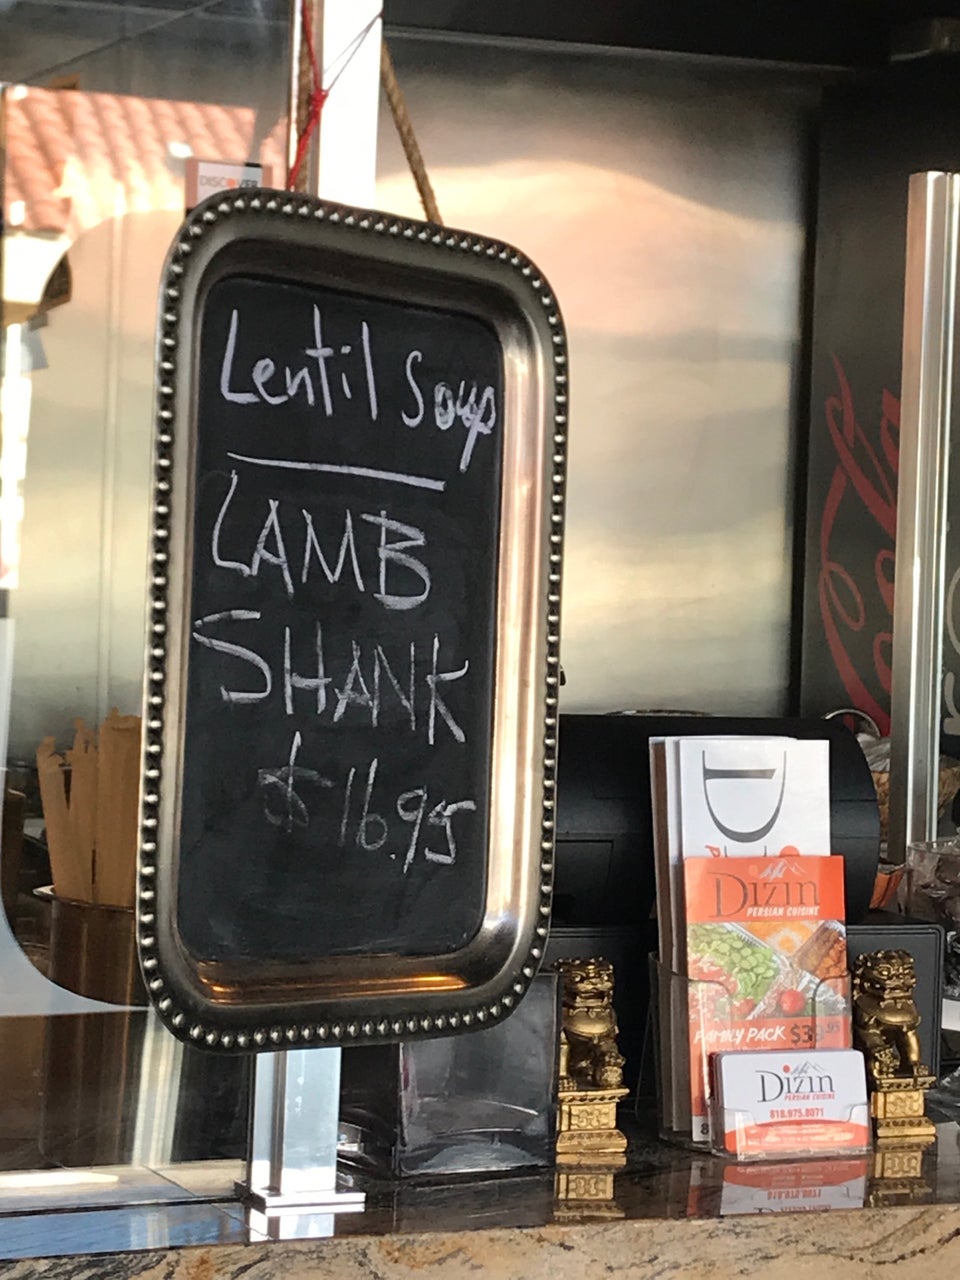 DISCOVER
Lentil Soup
LAMB
SHANK
$16.95
Coca
D
Dizin
PERSIAN CUISINE
FAMILY PACK $39.95
Dizin
PERSIAN CUISINE
818.975.8071